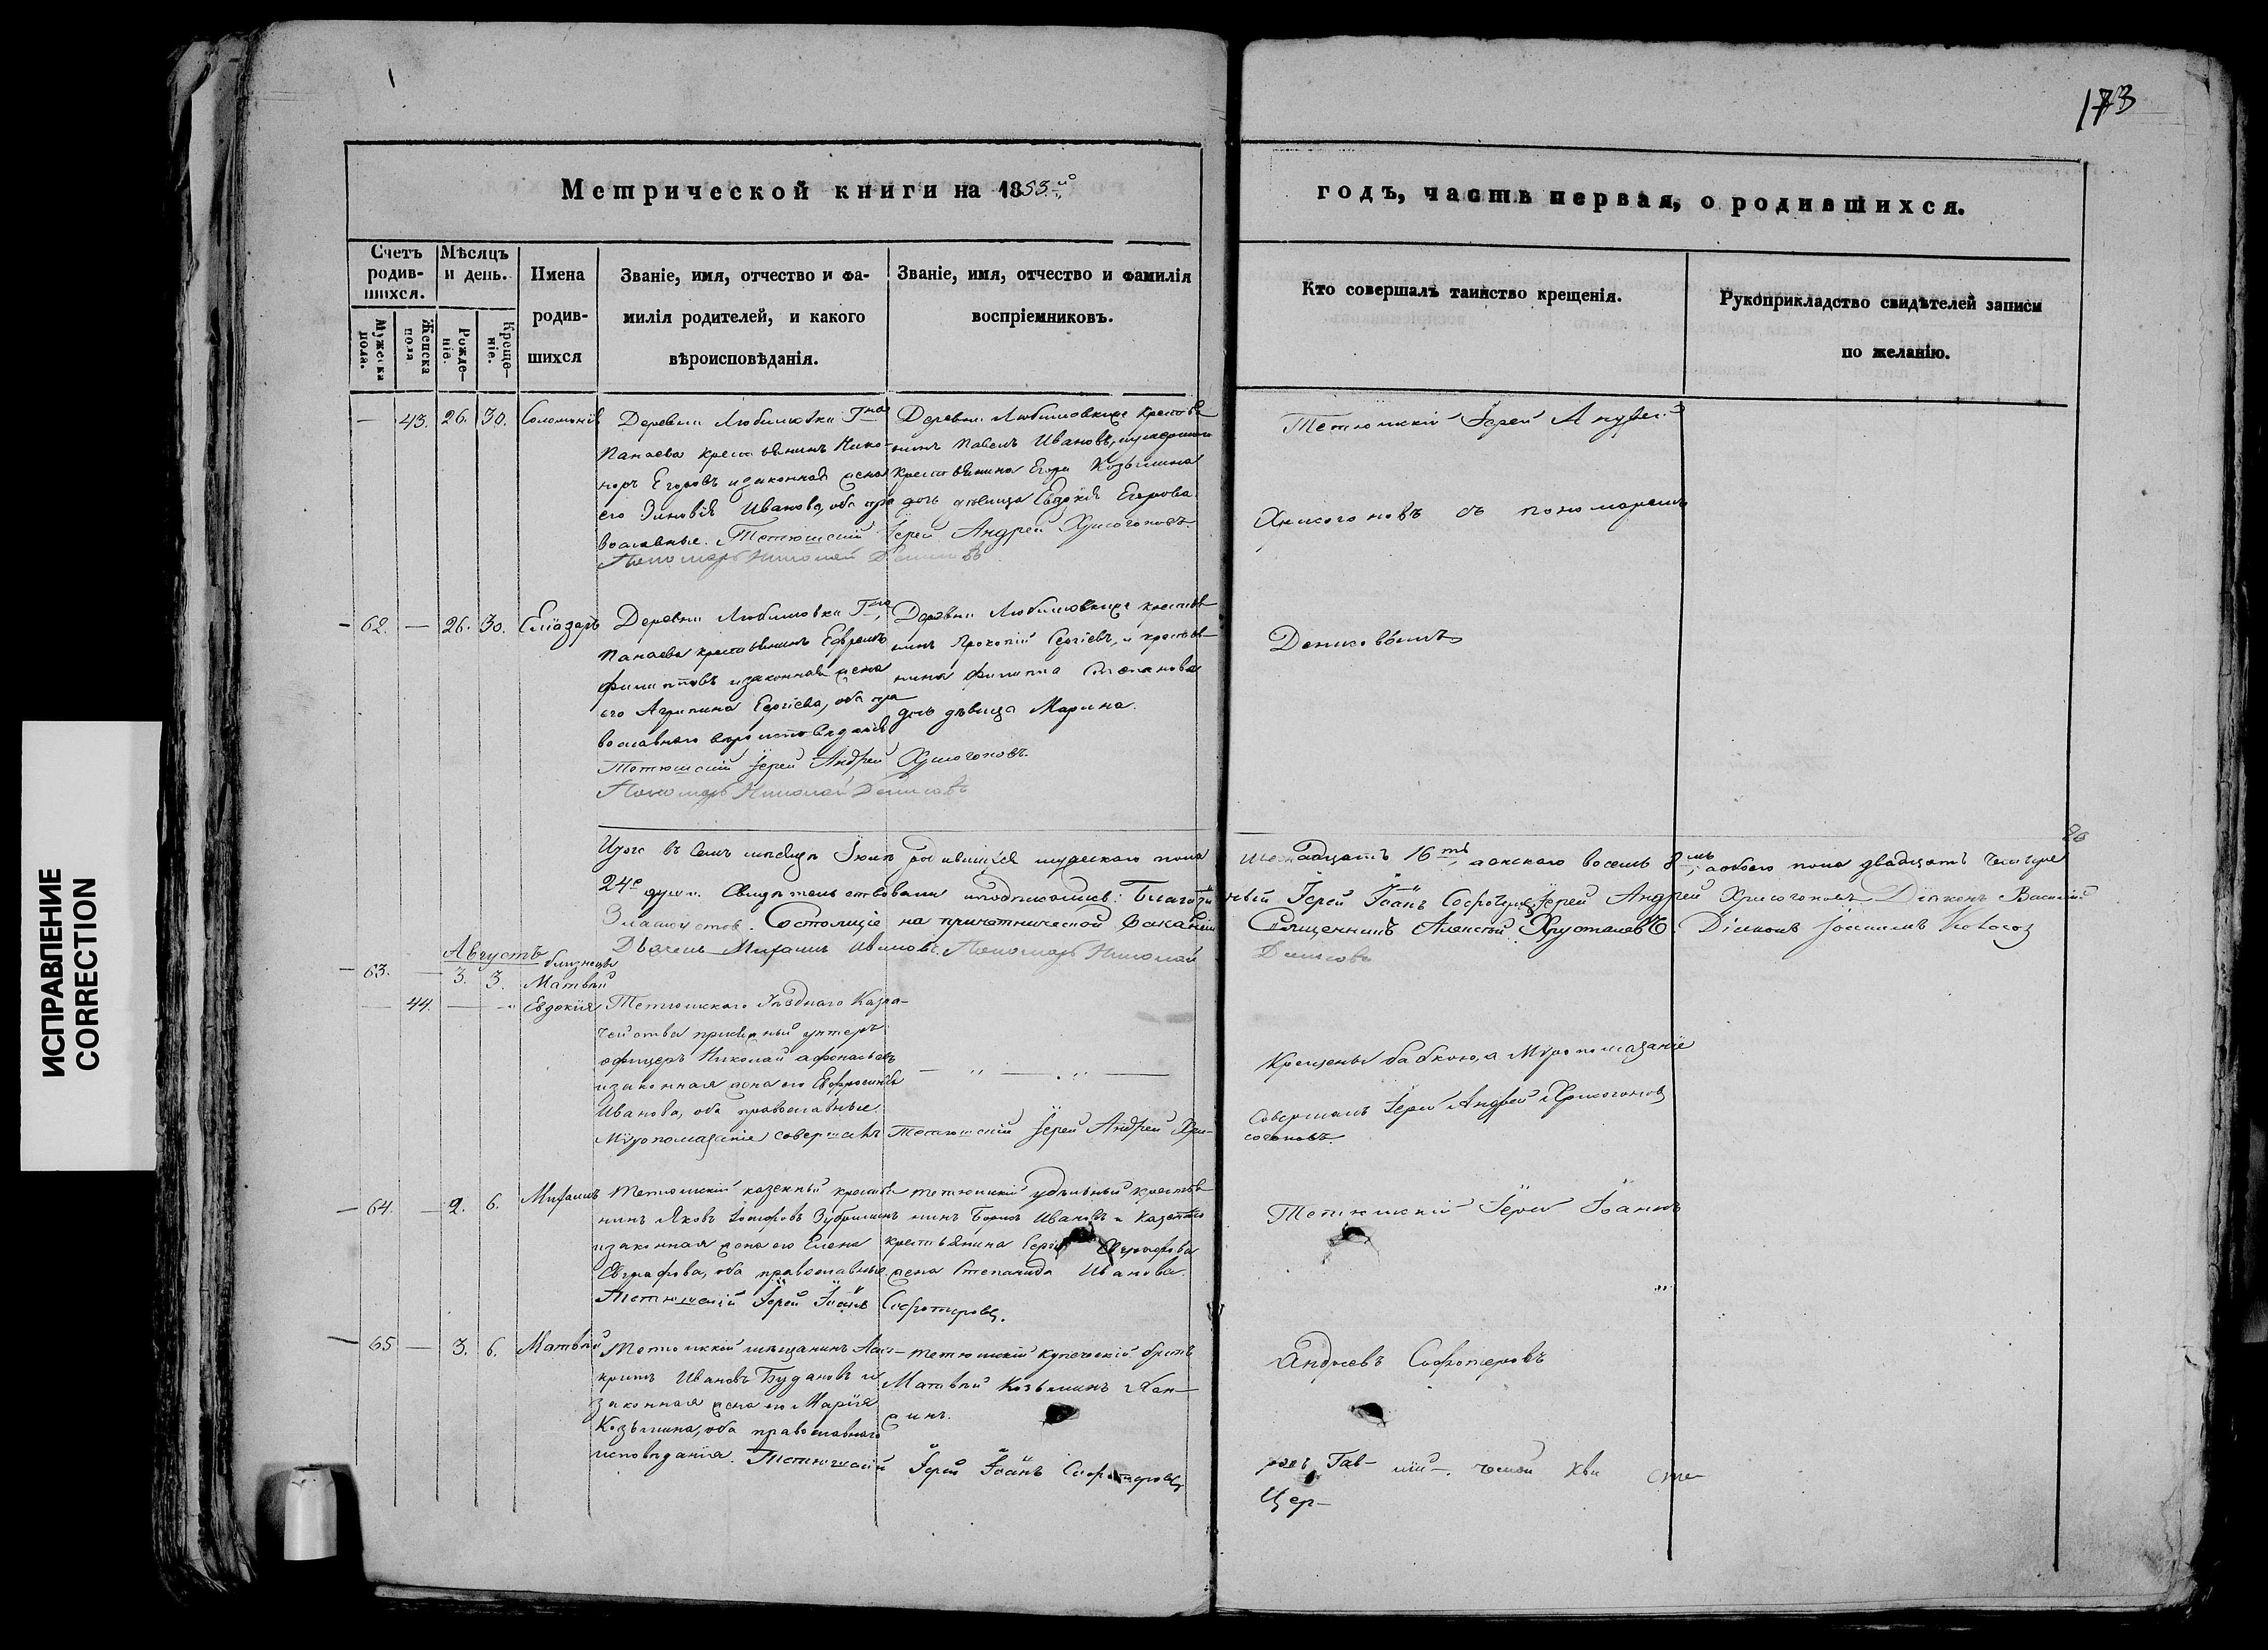 173
Метрической книги на 1853й
годъ, часть первая, о родившихся.
Счетъ родив-шихся.
Мѣсяцъ и день.
Имена родив-шихся
Званіе, имя, отчество и фа-
милія родителей, и какого
вѣроисповѣданія.
Званіе, имя, отчество и фамилія
воспріемниковъ.
Кто совершалъ таинство крещенія.
Рукоприкладство свидѣтелей записи
по желанію.
Мужеска пола.
Женска пола
Рожде-ніе.
Креще-ніе.
— 43. 26. 30. Соломонія
Деревни Любимовки Гна
Панаева крестьянинъ Ника-
норъ Егоровъ и законная жена
его Зиновія Иванова, оба пра
вославные. Тетюшскій Іерей Андрей Хрисогоновъ.
Пономарь Николай Денисовъ
Деревни Любимовки же крестья
нинъ Павелъ Ивановъ,
крестьянина Егора Козьмина
дочь дѣвица Евдокія Егорова.
Тетюшскій Іерей Андрей
Хрисогоновъ съ пономаремъ
62. — 26. 30. Еліазаръ
Деревни Любимовки Гна
Панаева крестьянинъ Ефремъ
Филипповъ и законная жена
его Агрипина Сергіева, оба пра
вославнаго вѣроисповѣданія
Тетюшскій Іерей Андрей Хрисогоновъ.
Пономарь Николай Денисовъ
Деревни Любимовки же крестья
нинъ Прокопій Сергіевъ, и крестья
нина Филиппа Степанова
дочь дѣвица Марина.
Денисовымъ
Итого въ семъ мѣсяцѣ Іюлѣ родившихся мужескаго пола шестнадцать 16ть, женскаго восемь 8мь, а обоего пола двадцать четыре
24е души. Свидѣтельствовали и подписались: Благочинный Іерей Іоаннъ Софотеровъ Іерей Андрей Хрисогоновъ Діаконъ Василій
Златоустовъ. Состоящіе на причетнической вакансіи Священникъ Алексѣй Хрусталевъ. Діаконъ
Дьячекъ Михаилъ Ивановъ. Пономарь Николай Денисовъ
Августъ
близнецы
63. — 3. 3. Матвѣй
— 44. — Евдокія
Тетюшскаго Уѣзднаго Казна-
чейства присяжный унтеръ
офицеръ Николай Афонасьевъ
и законная жена его Евфросинья
Иванова, оба православные.
Мѵропомазаніе совершалъ Тетюшскій Іерей Андрей Хри-
согоновъ.
Крещены бабкою, а Мѵропомазаніе
совершалъ Іерей Андрей Хрисогоновъ
64. — 2. 6. Михаилъ
Тетюшскій казенный крестья
нинъ Яковъ Зубринъ
и законная жена его Елена
Евграфова, оба православные
Тетюшскій Іерей Іоаннъ Софотеровъ.
тетюшскій удѣльный крестья
нинъ Борисъ Ивановъ и казеннаго
крестьянина Сергія
жена Степанида Иванова.
Тетюшскій Іерей Іоаннъ
65 — 3. 6. Матвѣй
Тетюшскій мѣщанинъ Аси-
критъ Ивановъ Будановъ и
законная жена его Марія
Козьмина, оба православнаго
исповѣданія. Тетюшскій Іерей Іоаннъ Софотеровъ
тетюшскій купеческій братъ
Матвѣй Козьминъ
Андреевъ Софотеровъ
Цер-
ИСПРАВЛЕНИЕ
CORRECTION